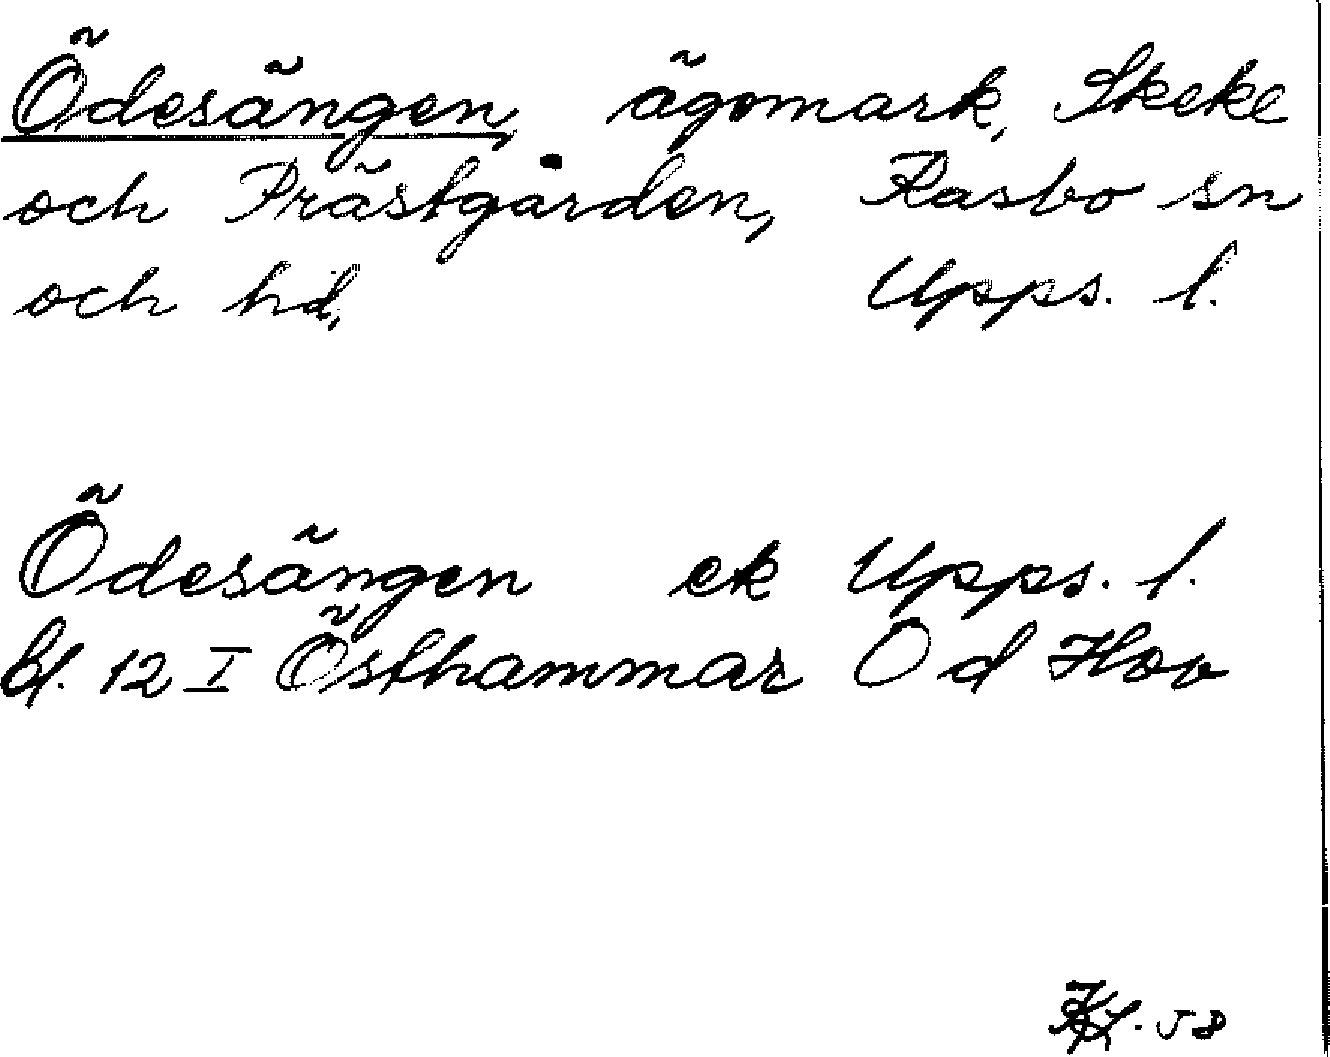 Ödesängen, ägomark, Skeke
och Prästgården, Rasbo sn
och hd, Upps. l.
Ödesängen ek Upps. l.
bl. 12 I Östhammar Öd
58